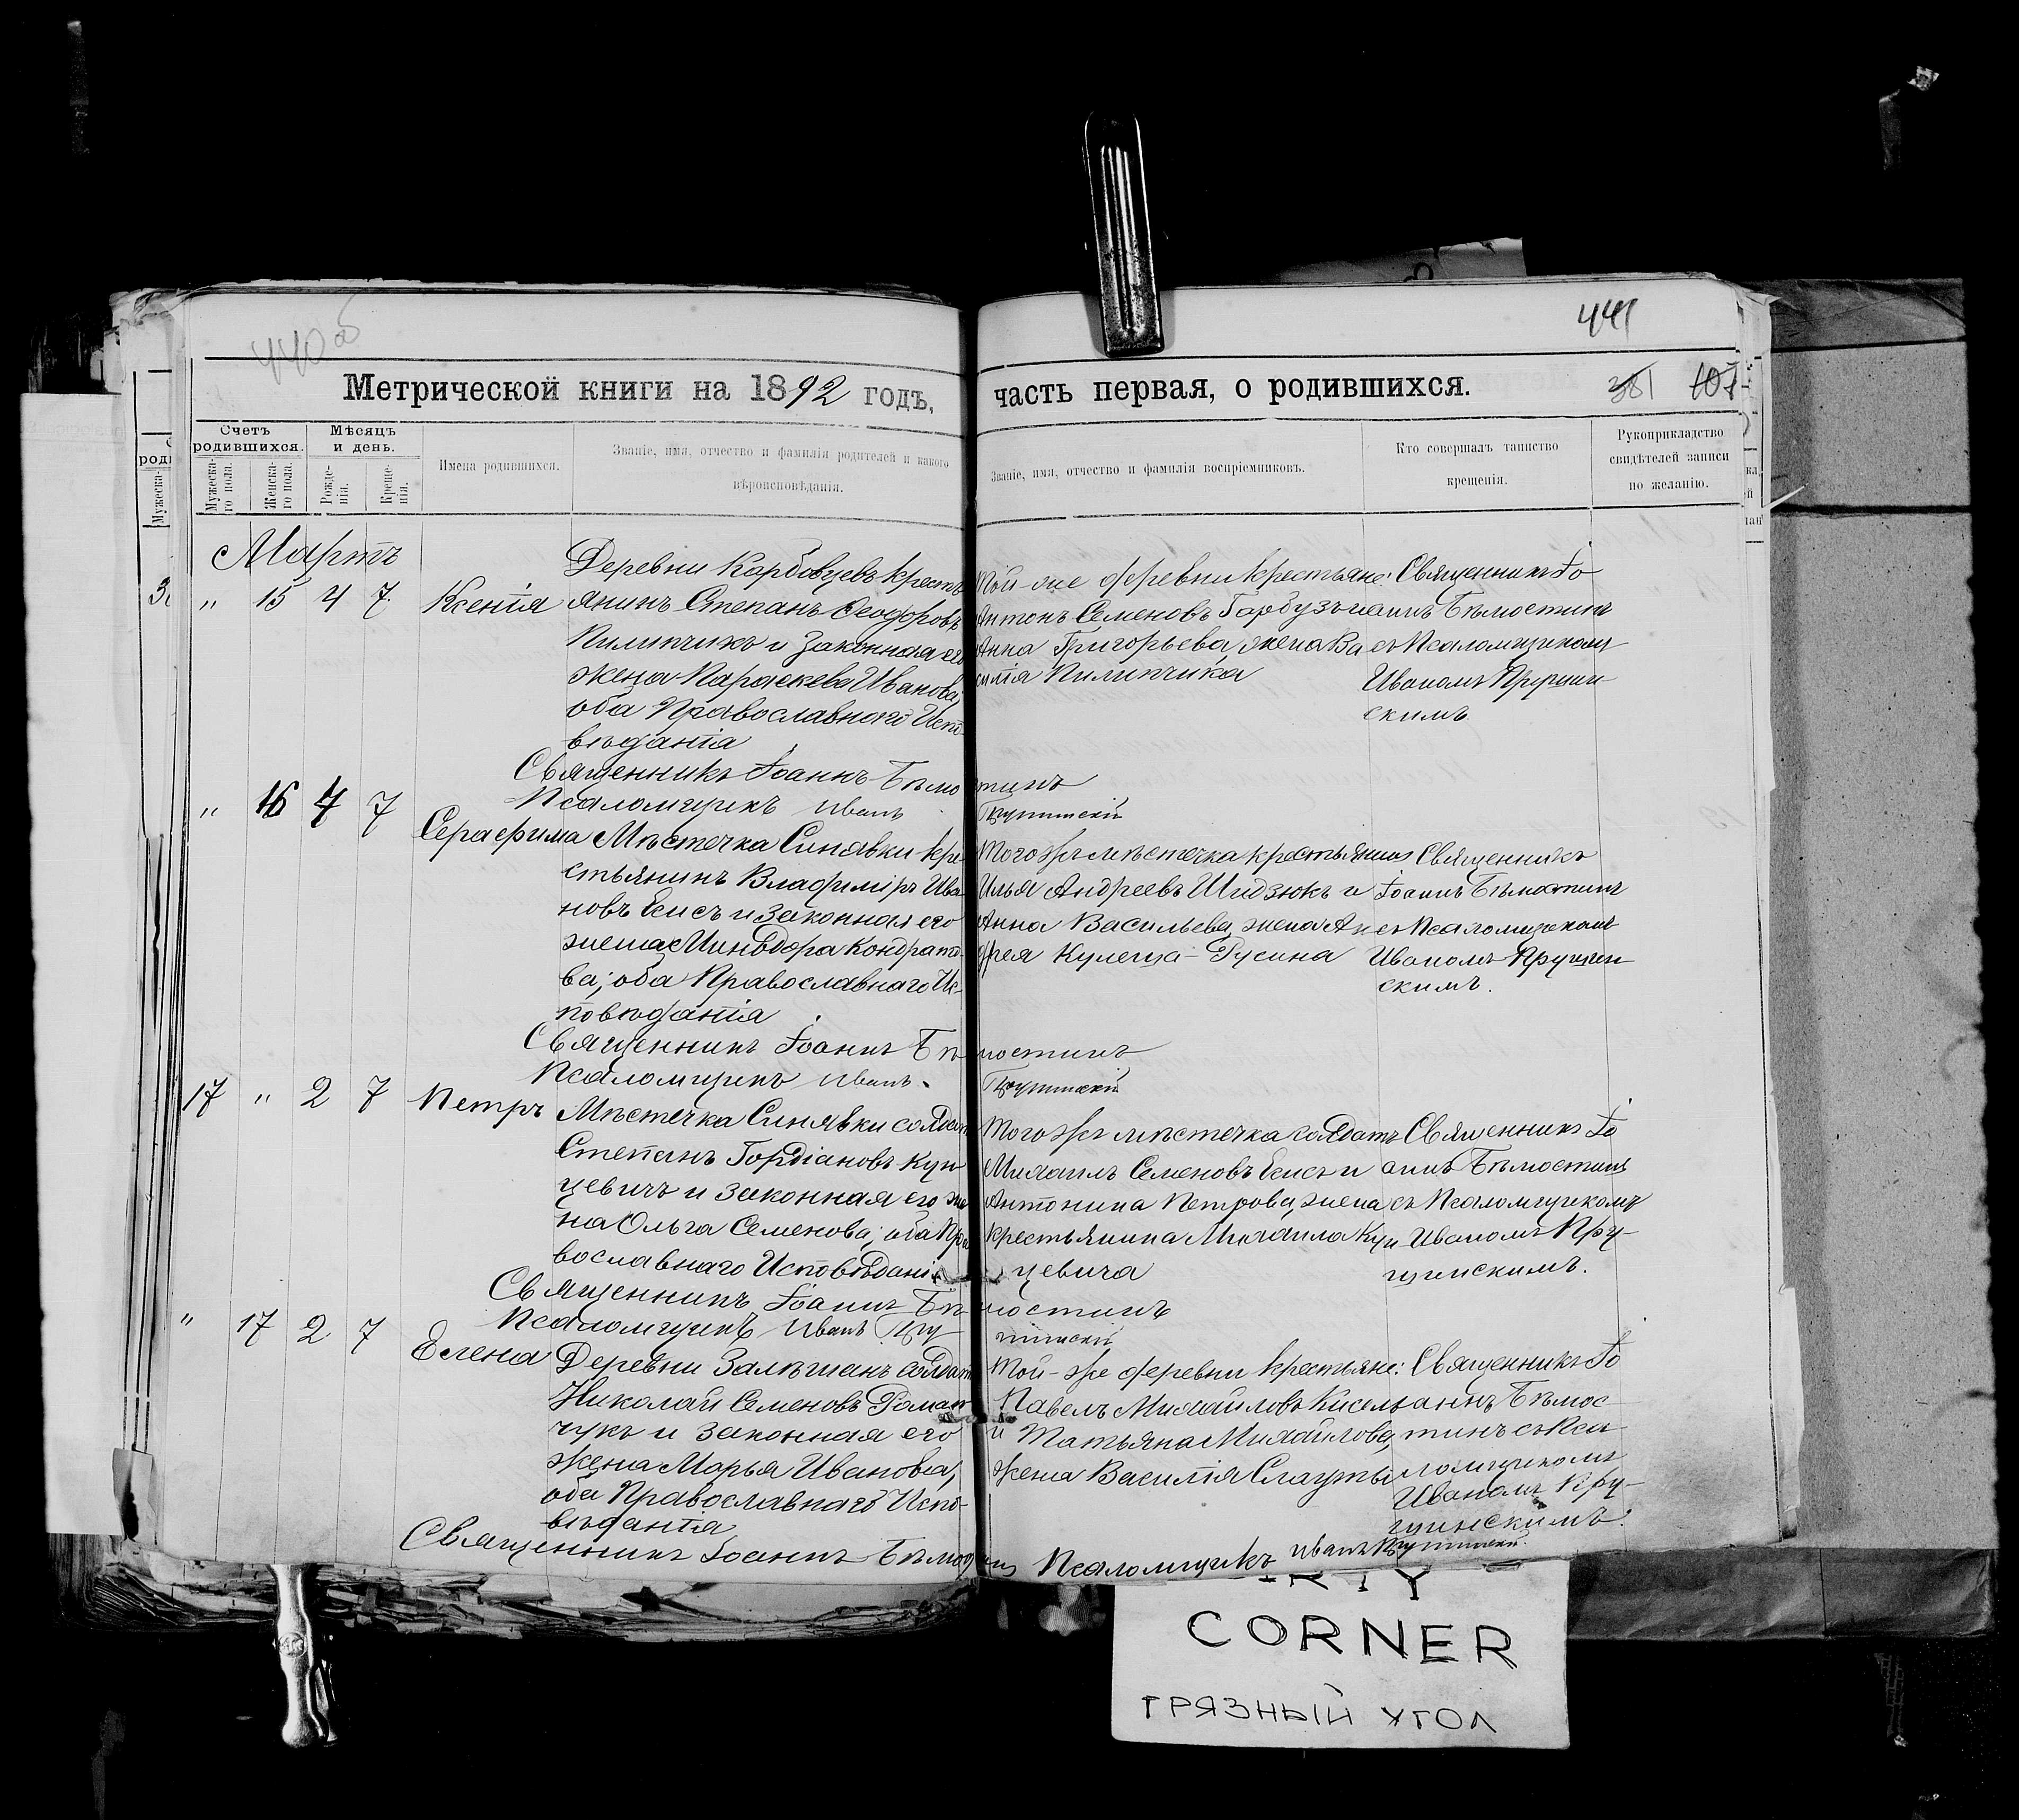 440 об
441
Метрической книги на 1892 годъ,
часть первая, о родившихся.
381 107
Счетъ родившихся.
Мѣсяцъ и день.
Мужеска-го пола.
Женска-го пола.
Рожде-нія.
Креще-нія.
Имена родившихся.
Званіе, имя, отчество и фамилія родителей и какого
вѣроисповѣданія.
Званіе, имя, отчество и фамилія воспріемниковъ.
Кто совершалъ таинство
крещенія.
Рукоприкладство
свидѣтелей записи
по желанію.
Мартъ
" 15 4 7. Ксенія
Деревни Карбовцевъ кресть
янинъ Степанъ Ѳеодоровъ
Пилипчикъ и законная его
жена Параскева Иванова,
оба Православнаго Испо-
вѣданія
Той-же деревни крестьяне:
Антонъ Семеновъ Гарбузъ и
Анна Григорьева, жена Ва
силія Пилипчика
Священникъ Іо
аннъ Бѣмостинъ
съ Псаломщикомъ
Иваномъ Прущин
скимъ
Священникъ Іоаннъ Бѣмостинъ
Псаломщикъ Иванъ Прущинскій
" 16 4 7
Серафима
Мѣстечка Синявки кре-
стьянинъ Владиміръ Ива
новъ Елисъ и законная его
жена Минодора Кондрато-
ва; оба Православнаго Ис-
повѣданія
Того же мѣстечка крестьянин
Илья Андреевъ Шидзюкъ и
Анна Васильева, жена Ан
дрея Кулеша-Русина
Священникъ
Іоаннъ Бѣмостинъ
съ Псаломщикомъ
Иваномъ Прущин
скимъ.
Священникъ Іоаннъ Бѣмостинъ
Псаломщикъ Иванъ Прущинскій
17 " 2 7 Петръ
Мѣстечка Синявки солдат
Степанъ Гордіановъ Кун
цевичъ и законная его же
на Ольга Семенова; оба Пра
вославнаго Исповѣданія
Того же мѣстечка солдатъ
Михаилъ Семеновъ Елисъ и
Антонина Петрова, жена
крестьянина Михаила Кун
цевича
Священникъ Іо
аннъ Бѣмостинъ
съ Псаломщикомъ
Иваномъ Пру-
щинскимъ.
Священникъ Іоаннъ Бѣмостинъ
Псаломщикъ Иванъ Прущинскій
" 17 2 7
Елена
Деревни Залѣшанъ солдат
Николай Семеновъ Роман
чукъ и законная его
жена Марья Иванова,
оба Православнаго Испо-
вѣданія
Той-же деревни крестьяне:
Павелъ Михайловъ Кисель
и Татьяна Михайлова,
жена Василія Слауты
Священникъ Іо
аннъ Бѣмос
тинъ съ Пса
ломщикомъ
Иваномъ Пру-
щинскимъ.
Священникъ Іоаннъ Бѣмостинъ Псаломщикъ Иванъ Прущинскій
CORNER
ГРЯЗНЫЙ УГОЛ